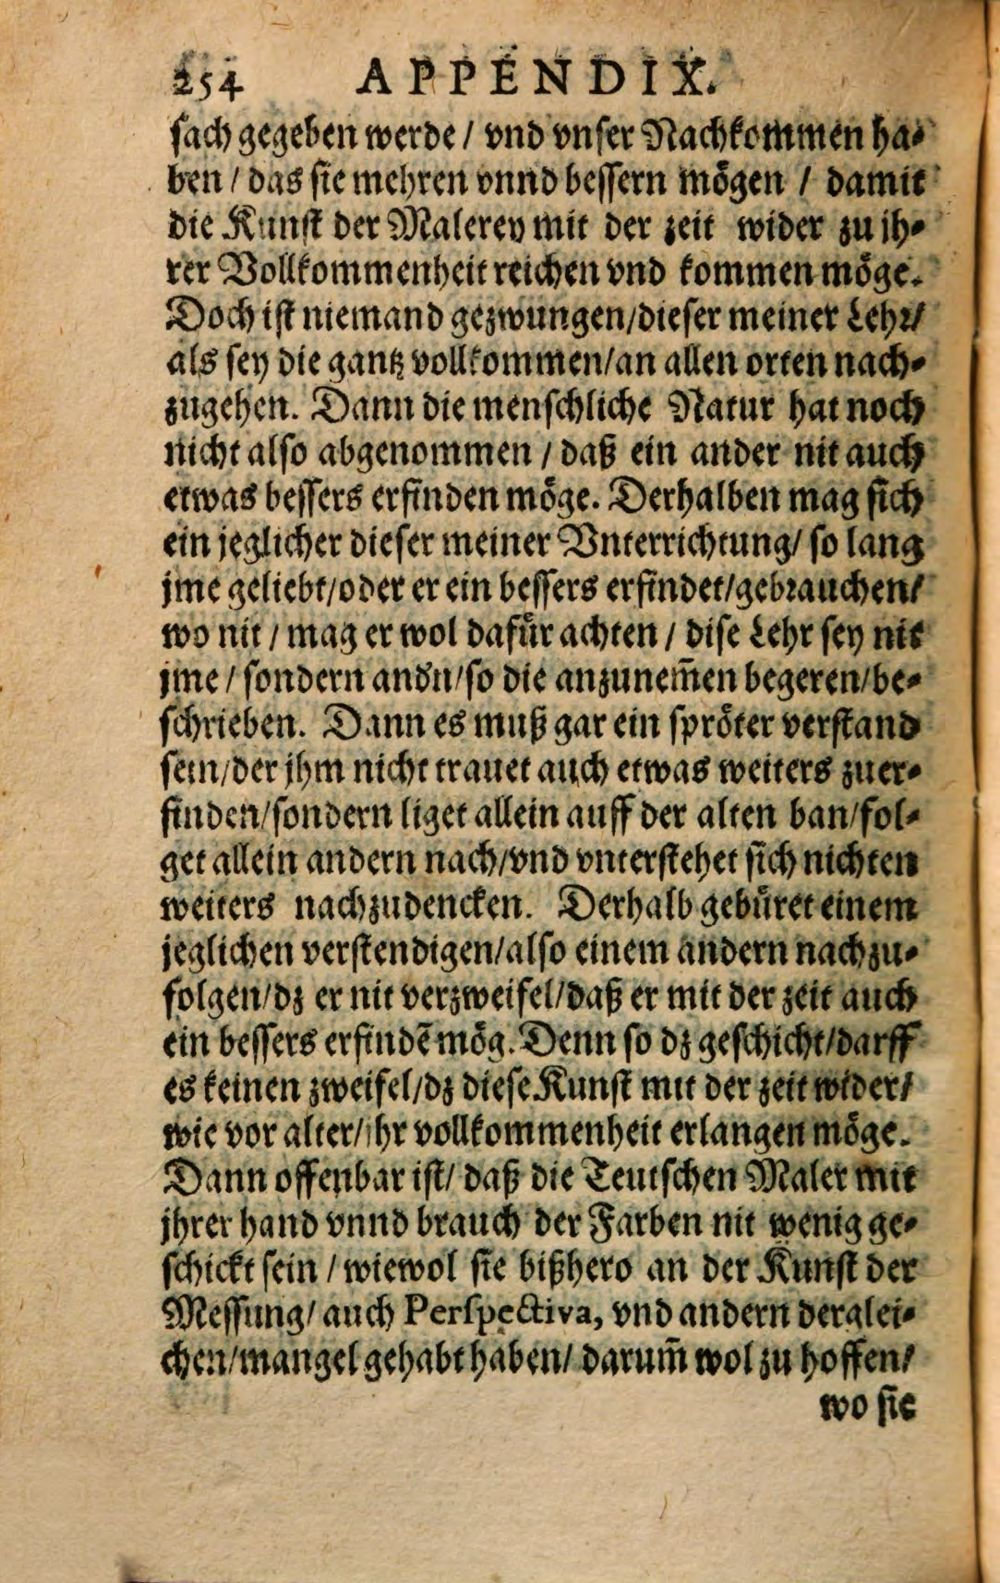 254 APPENDIX.
sach gegeben werde / vnd vnser Nachkommen ha-
ben / das sie mehren vnnd bessern mögen / damit
die Kunst der Malerey mit der zeit wider zu ih-
rer Vollkommenheit reichen vnd kommen möge.
Doch ist niemand gezwungen/dieser meiner Lehr/
als sey die gantz vollkommen/an allen orten nach-
zugehen. Dann die menschliche Natur hat noch
nicht also abgenommen / daß ein ander nit auch
etwas bessers erfinden möge. Derhalben mag sich
ein jeglicher dieser meiner Vnterrichtung/ so lang
jme geliebt/oder er ein bessers erfindet/gebrauchen/
wo nit / mag er wol dafür achten / dise Lehr sey nit
jme / sondern andn/so die anzunem̃en begeren/be-
schrieben. Dann es muß gar ein spröter verstand
sein/der jhm nicht trauet auch etwas weiters zuer-
finden/sondern liget allein auff der alten ban/fol-
get allein andern nach/vnd vnterstehet sich nichten
weiters nachzudencken. Derhalb gebüret einem
jeglichen verstendigen/also einem andern nachzu-
folgen/dz er nit verzweifel/daß er mit der zeit auch
ein bessers erfindẽ mög. Denn so dz geschicht/darff
es keinen zweifel/dz diese Kunst mit der zeit wider/
wie vor alter/ihr vollkommenheit erlangen möge.
Dann offenbar ist/ daß die Teutschen Maler mit
jhrer hand vnnd brauch der Farben nit wenig ge-
schickt sein / wiewol sie bißhero an der Kunst der
Messung/ auch Perspectiva, vnd andern derglei-
chen/mangel gehabt haben/ darum̃ wol zu hoffen/
wo sie